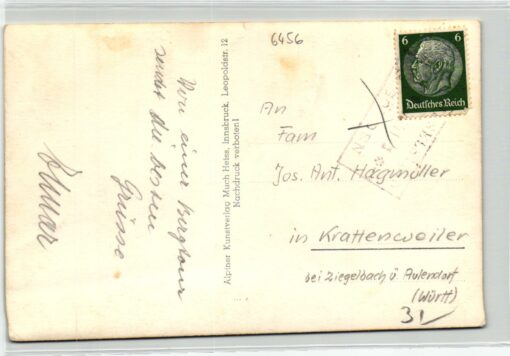 6456
Von einer Bergtour
sendet die besten
Grüsse
Alpiner Kunstverlag Much Heiss, Innsbruck, Leopoldstr. 12
Nachdruck verboten!
6 6
Deutsches Reich
An
Fam
Jos. Ant. Hagmüller
in Krattenweiler
bei Ziegelbach ü. Aulendorf
(Württ)